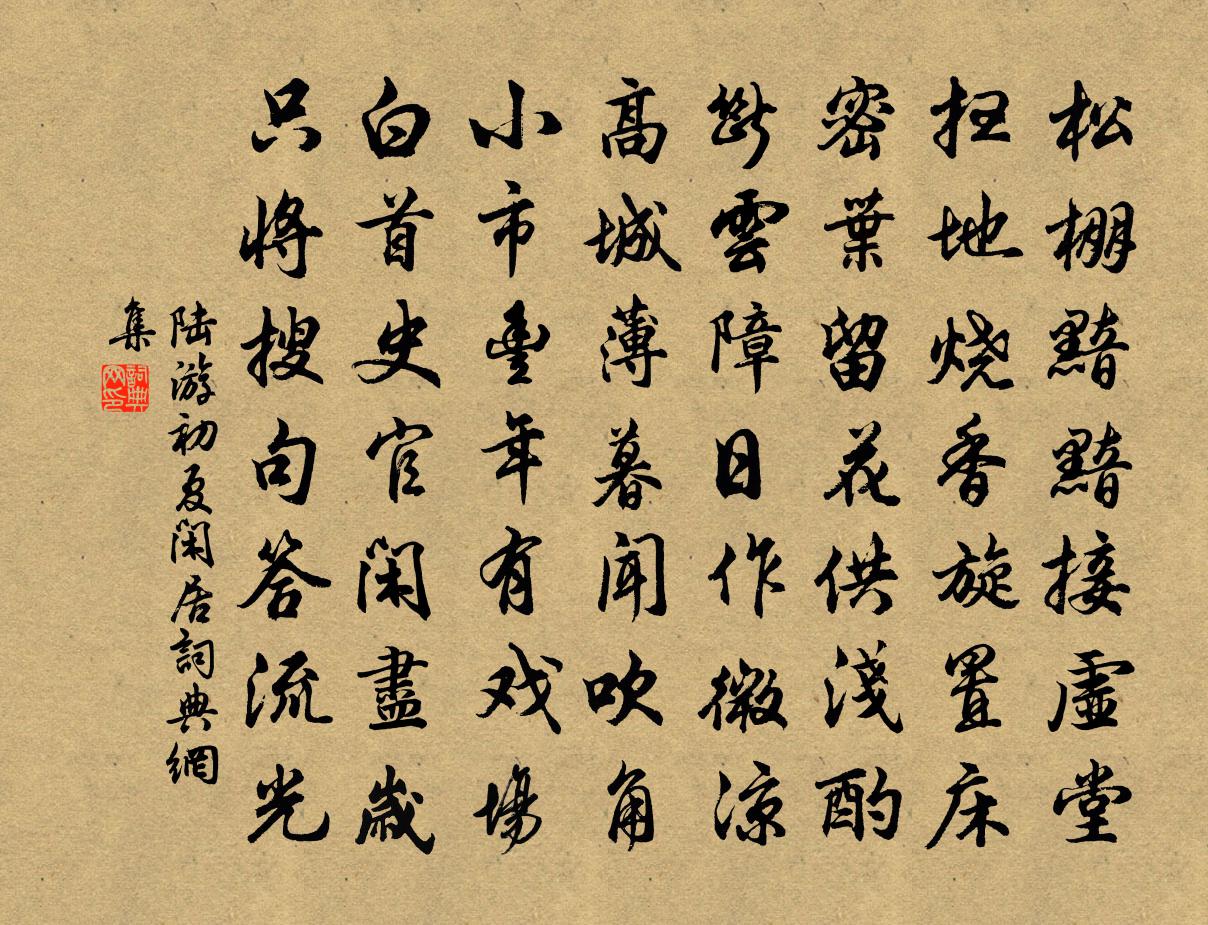 松棚黯黯接虛堂
扫地烧香旋置床
密葉留花供淺酌
斷雲障日作微涼
高城薄暮聞吹角
小市豊年有戏場
白首史官闲盡歲
只將搜句答流光
陆游初夏闲居詞典網
集
詞典网印